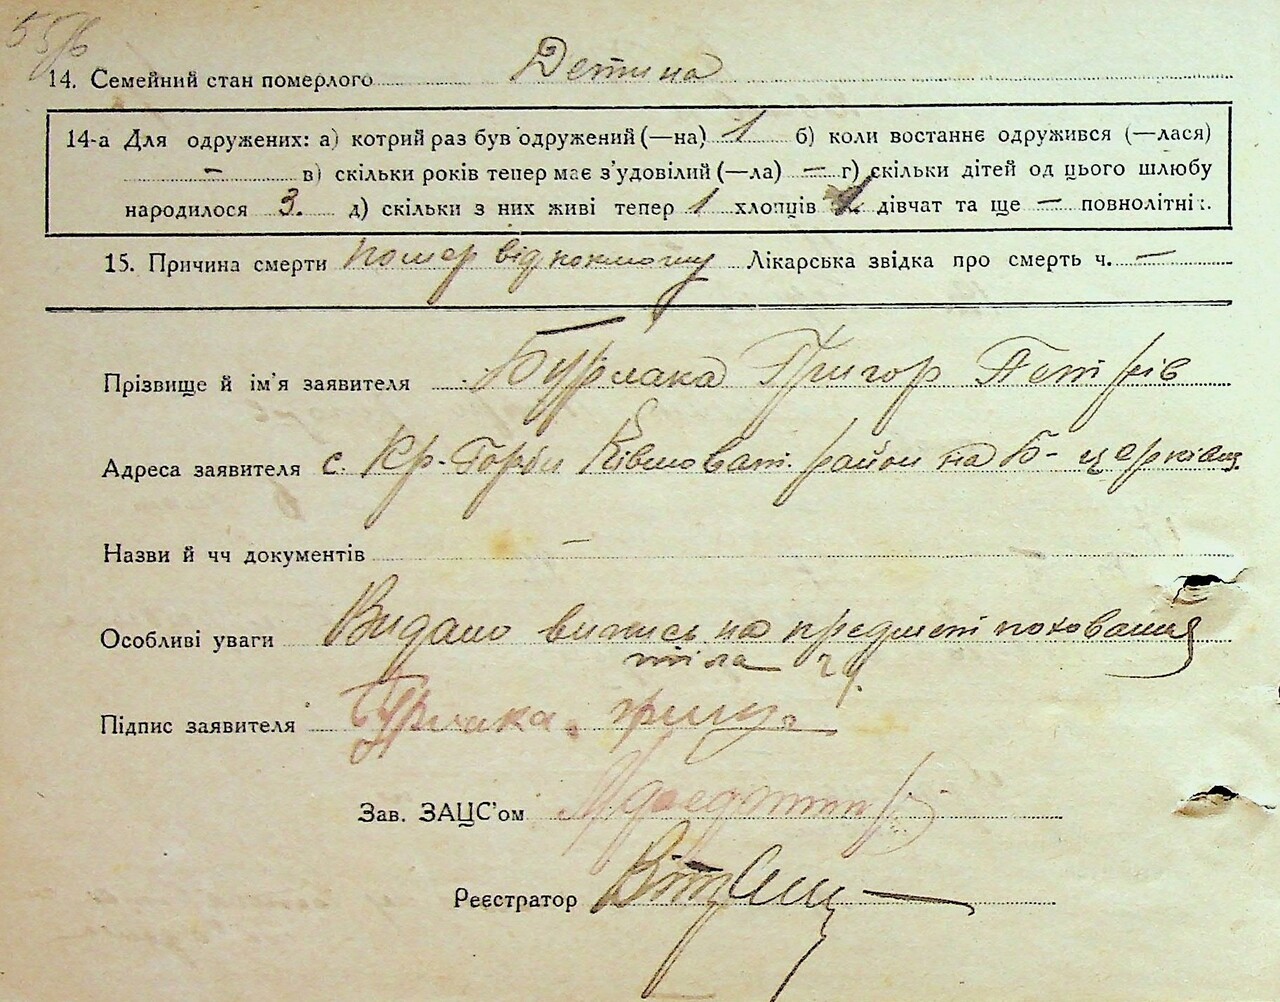 55/6
14. Семейний стан померлого Детина
14-а Для одружених: а) котрий раз був одружений (—на) 1 б) коли востаннє одружився (—лася)
— в) скільки років тепер має з'удовілий (—ла) — г) скільки дітей од цього шлюбу
народилося 3. д) скільки з них живі тепер 1 хлопців 1 дівчат та ще — повнолітніх.
15. Причина смерти помер від Лікарська звідка про смерть ч. —
Прізвище й ім'я заявителя Бурлака Григор Петрів
Адреса заявителя с. Кр-Горби район на Б-церківщ.
Назви й чч документів —
Особливі уваги Видано випись на предмет поховання
тіла
Підпис заявителя Бурлака.
Зав. ЗАЦС'ом
Реєстратор